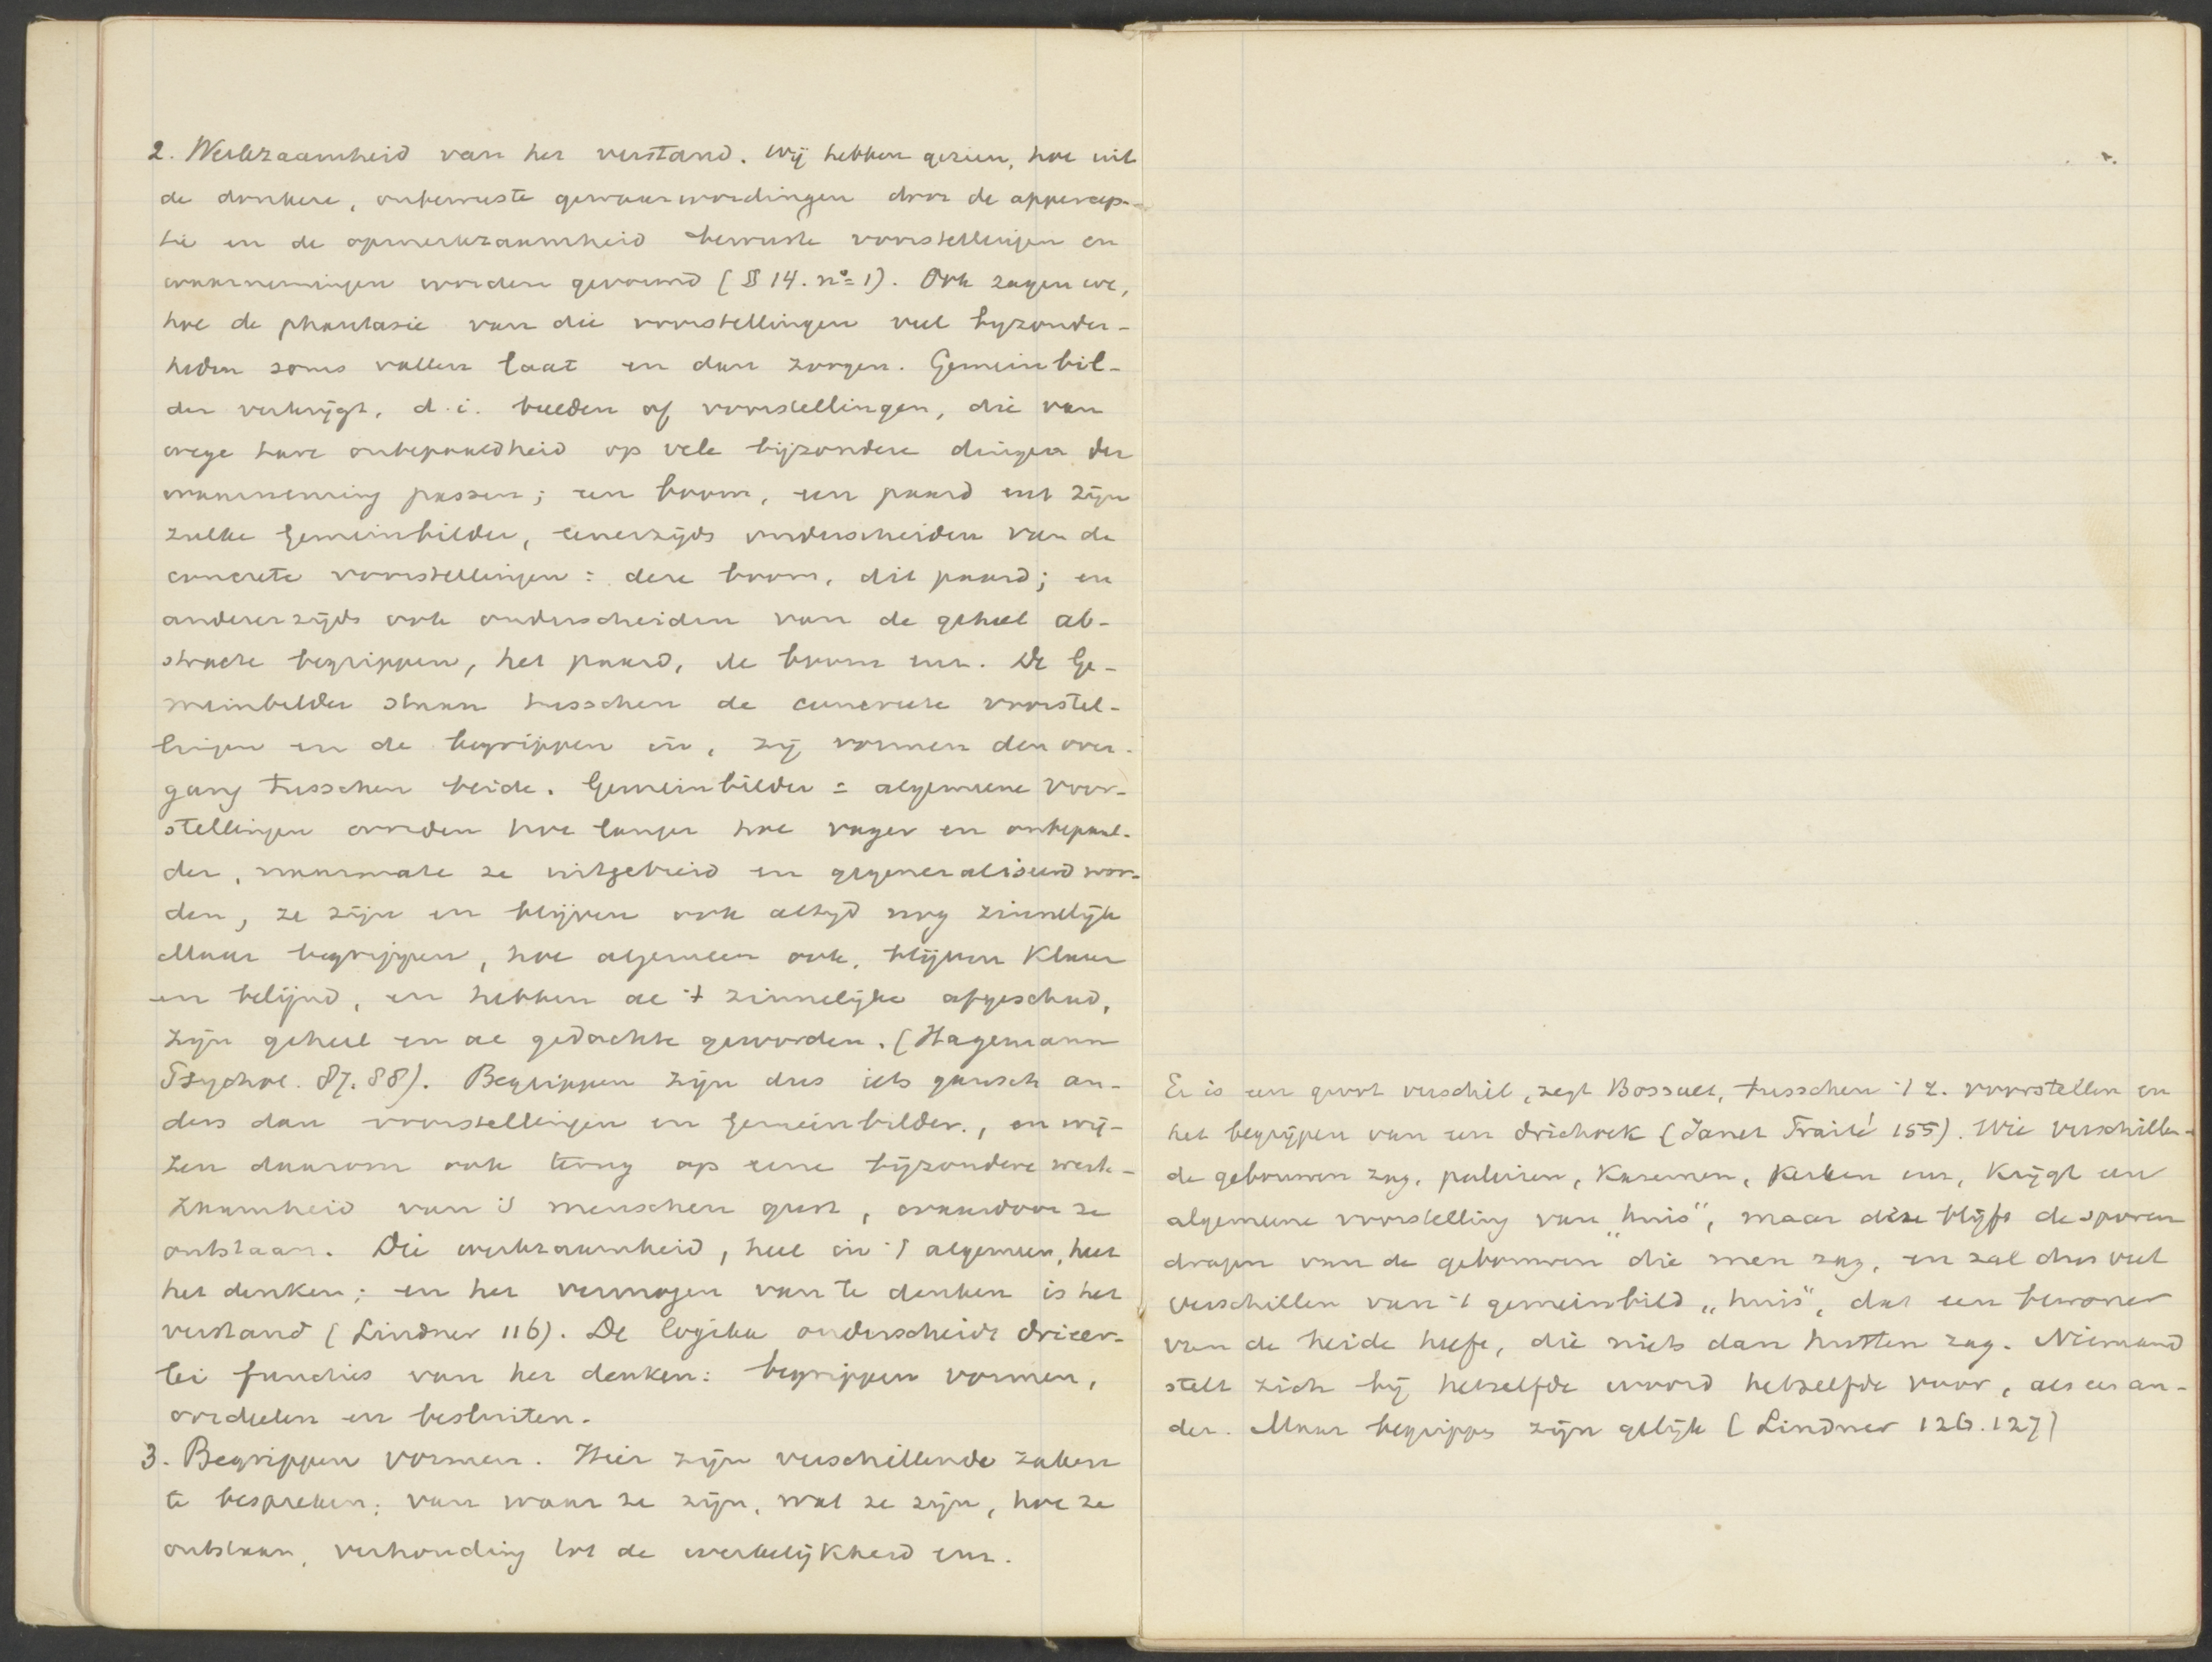 2. Werkzaamheid van het verstand. Wij hebben gezien, hoe uit
de donkere, onbewuste gewaarwordingen door de appercep-
tie en de opmerkzaamheid bewuste voorstellingen en
waarnemingen worden gevormd (§ 14. nº 1). Ook zagen we,
hoe de phantasie van die voorstellingen veel byzonder-
heden soms vallen laat en dan zoogen. Gemeinbil-
der verkrijgt, d.i. beelden of voorstellingen, die van
wege hare onbepaaldheid op vele bijzondere dingen der
waarneming passen; een boom, een paard enz zijn
zulke Gemeinbilder, eenerzijds onderscheiden van de
concrete voorstellingen: deze boom, dit paard; en
andererzijds ook onderscheiden van de geheel ab-
stracte begrippen, het paard, de boom enz. De Ge-
meinbilder staan tusschen de concrete voorstel-
lingen en de begrippen in, zij vormen den over-
gang tusschen beide. Gemeinbilder = algemeene voor-
stellingen worden hoe langer hoe vager en onbepaal-
der, naarmate ze uitgebreid en gegeneraliseerd wor-
den, ze zijn en blijven ook altijd nog zinnelijk
Maar begrippen, hoe algemeen ook, blijven klaar
en belijnd, en hebben al 't zinnelijke afgeschud,
zijn geheel en al gedachte geworden. (Hagemann
Psychol. 87.88). Begrippen zijn dus iets gansch an-
ders dan voorstellingen en Gemeinbilder, en wij-
zen daarom ook terug op eene bijzondere werk-
zaamheid van 's menschen geest, waardoor ze
ontstaan. Die werkzaamheid, heel in 't algemeen, heet
het denken; en het vermogen van te denken is het
verstand (Lindner 116). De logika onderscheidt drieer-
lei functies van het denken: begrippen vormen,
oordeelen en besluiten.
3. Begrippen vormen. Hier zijn verschillende zaken
te bespreken: van waar ze zijn, wat ze zijn, hoe ze
ontstaan, verhouding tot de werkelijkheid enz.
Er is een groot verschil, zegt Bossuet, tusschen 't z. voorstellen en
het begrijpen van een driehoek (Janet Traité 155). Wie verschillen-
de gebouwen zag, paleizen, Kazernen, Kerken enz, krijgt een
algemeene voorstelling van "huis", maar deze blijft de sporen
dragen van de gebouwen die men zag, en zal dus veel
verschillen van 't gemeinbild „huis", dat een bewoner
van de heide heeft, die niets dan hutten zag. Niemand
stelt zich bij hetzelfde woord hetzelfde voor, als een an-
der. Maar begrippen zijn gelijk (Lindner 126.127)